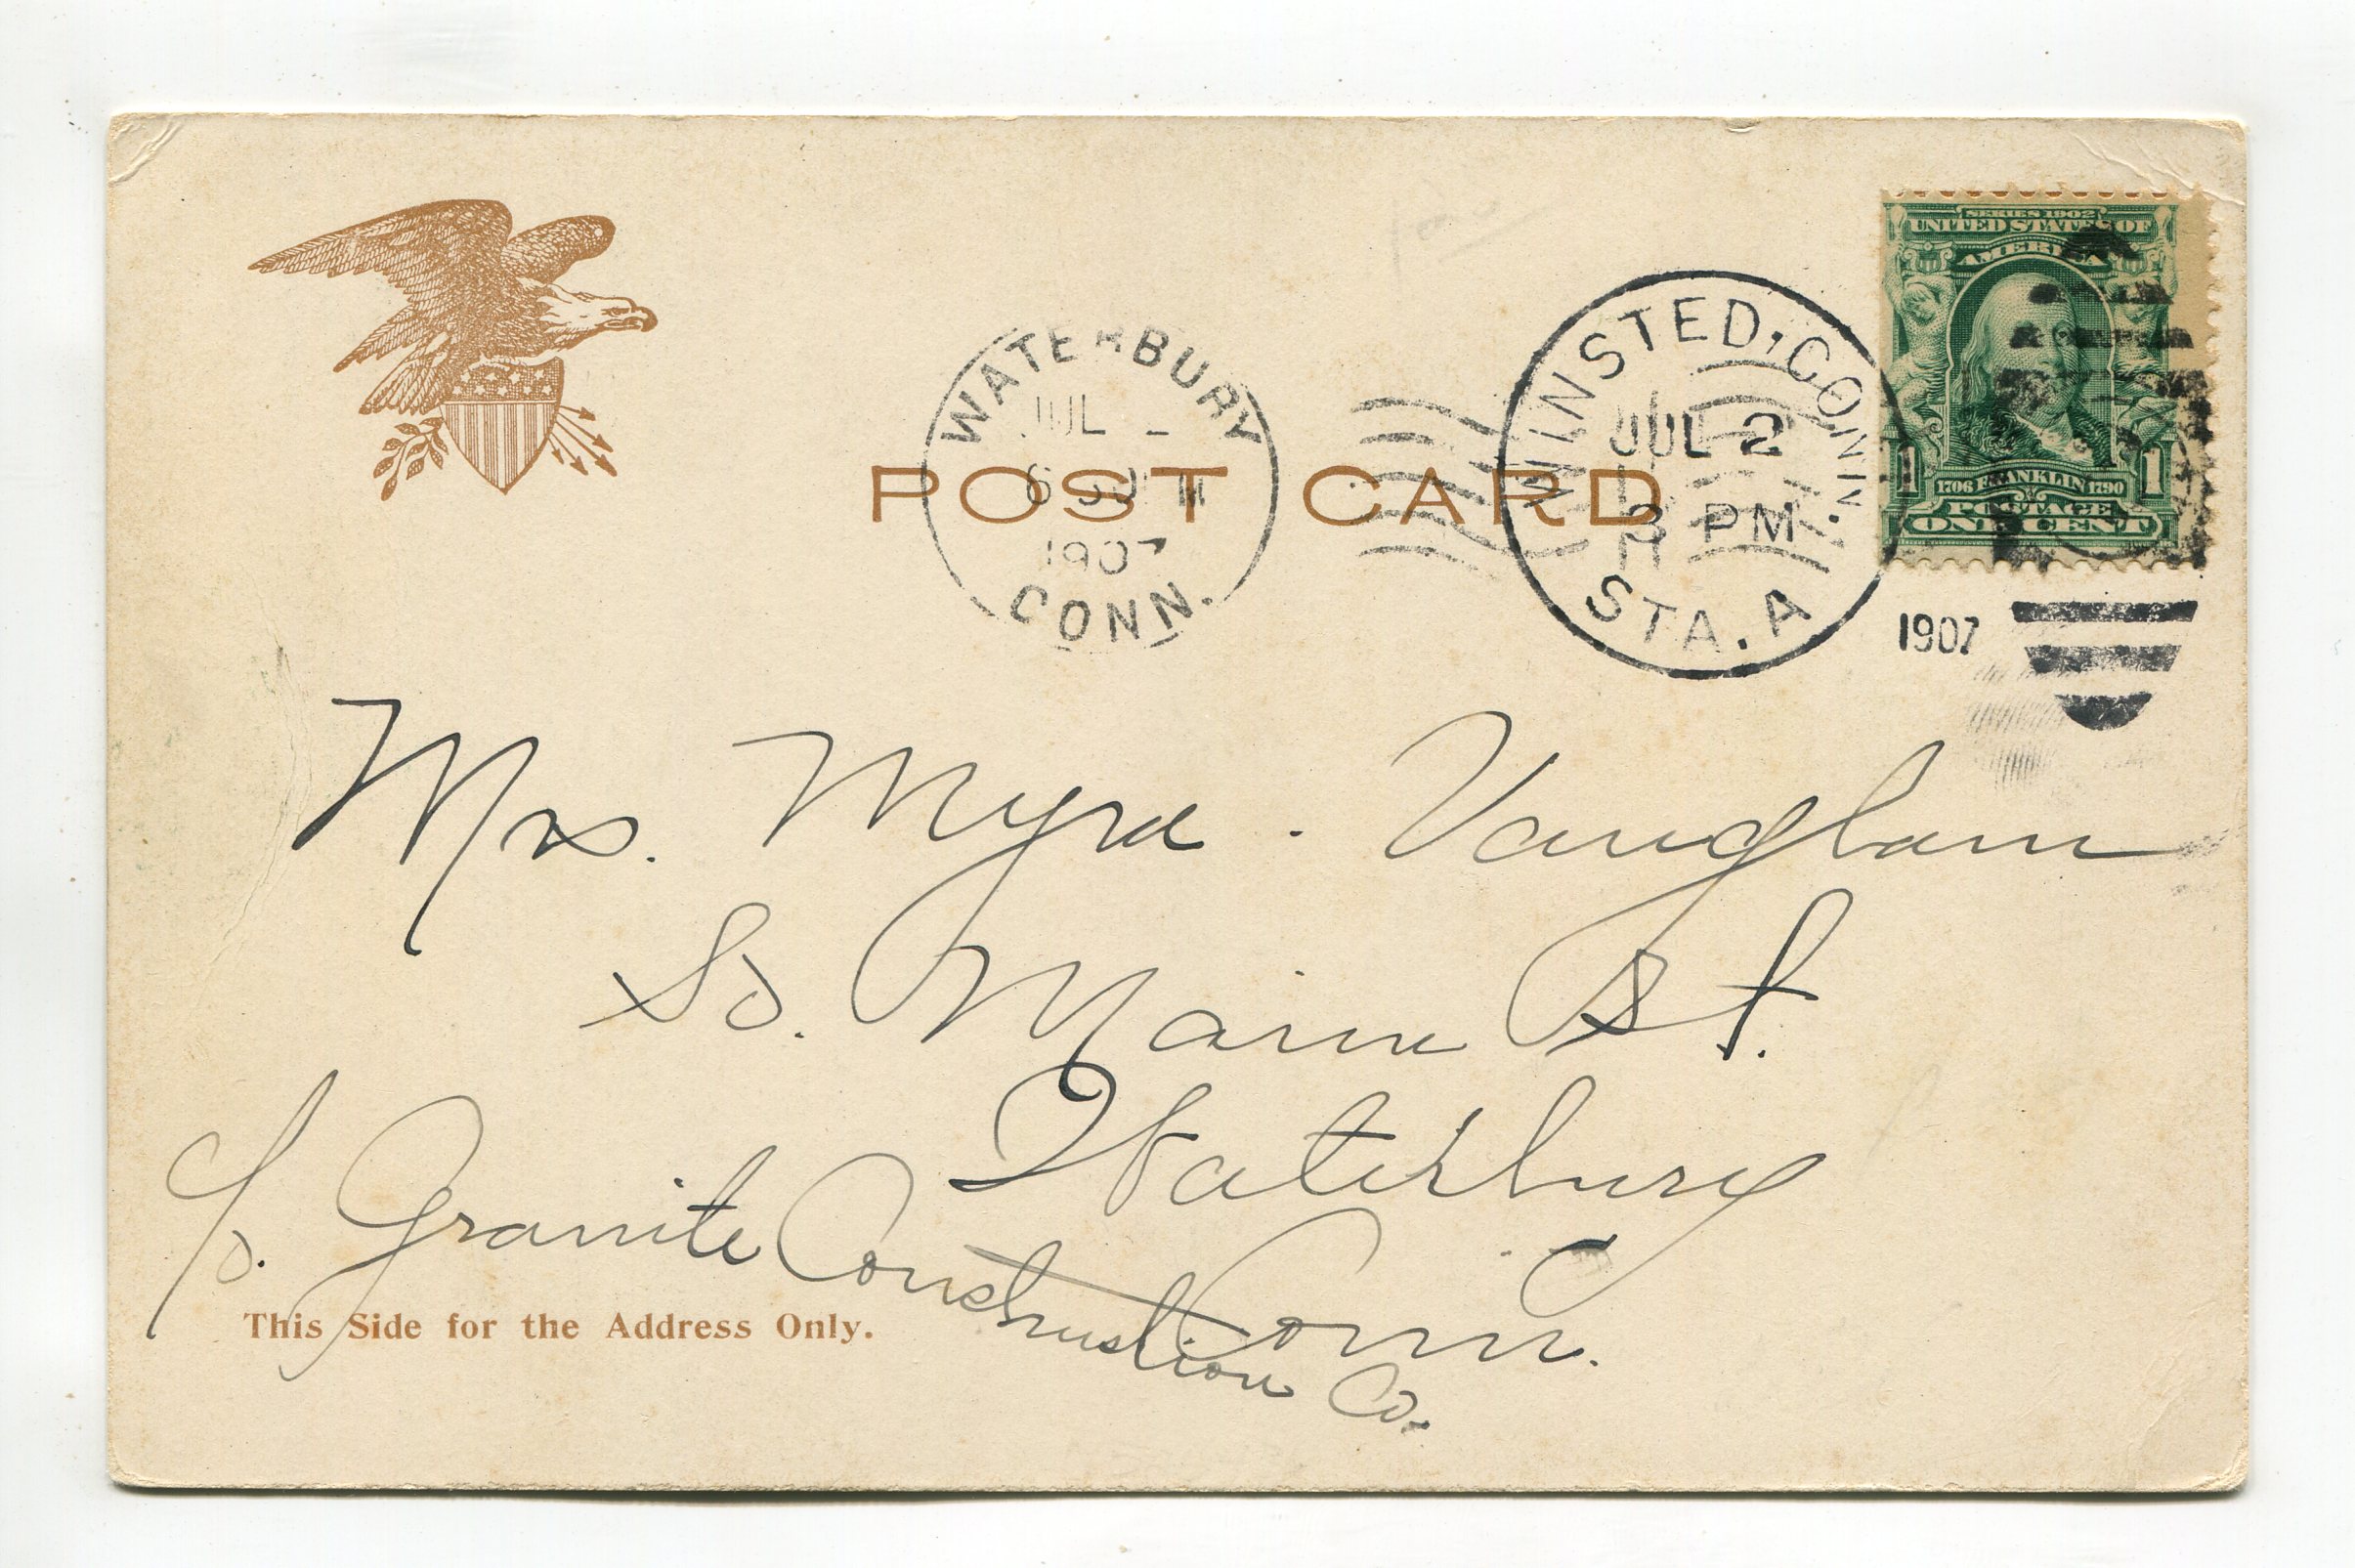 SERIES 1902
UNITED STATES OF
AMERICA
1 1
1706 FRANKLIN 1790
POSTAGE
ONE CENT
WATERBURY
JUL
6
1907
CONN.
WINSTED, CONN.
JUL 2
3 PM
STA. A
1907
POST CARD
Mrs. Myra. Vaughan
So. Main St.
Waterbury
Conn.
c/o. Granite Construction Co.
This Side for the Address Only.